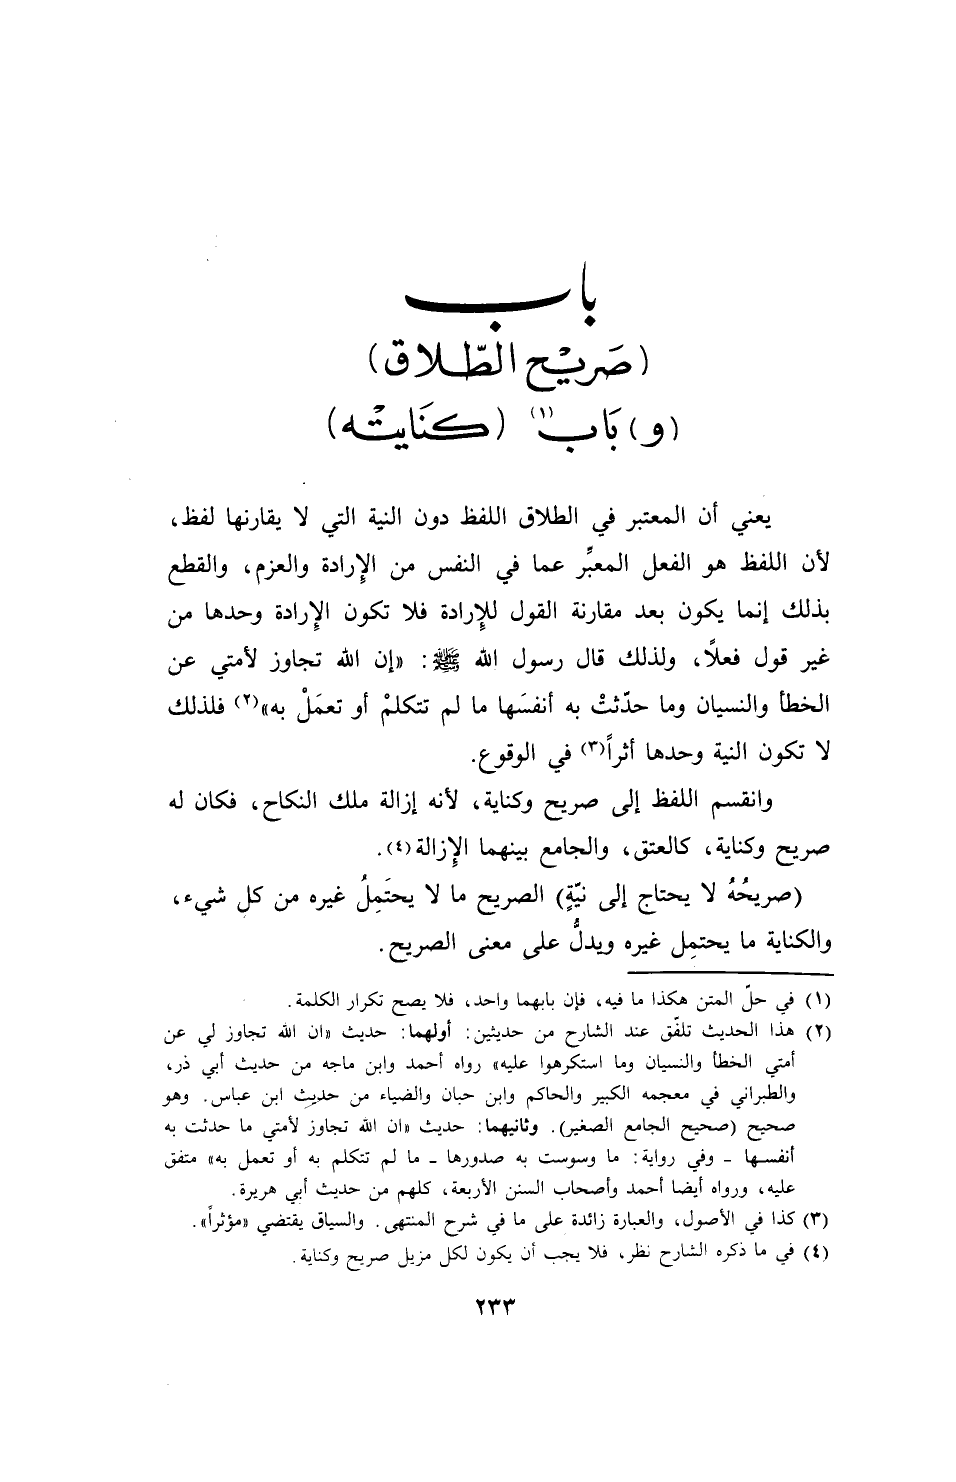 باب
(صَرِيْح الطّلاق)
(و) بَاب(١) (كنَايتْه)
يعني أن المعتبر في الطلاق اللفظ دون النية التي لا يقارنها لفظ،
لأن اللفظ هو الفعل المعبِّر عما في النفس من الإرادة والعزم، والقطع
بذلك إنما يكون بعد مقارنة القول للإرادة فلا تكون الإرادة وحدها من
غير قول فعلاً، ولذلك قال رسول الله ﷺ: «إن الله تجاوز لأمتي عن
الخطأ والنسيان وما حدّثتْ به أنفسَها ما لم تتكلمْ أو تعمَلْ به»(٢) فلذلك
لا تكون النية وحدها أثراً(٣) في الوقوع.
وانقسم اللفظ إلى صريح وكناية، لأنه إزالة ملك النكاح، فكان له
صريح وكناية، كالعتق، والجامع بينهما الإزالة(٤).
(صريحُهُ لا يحتاج إلى نيّةٍ) الصريح ما لا يحتَمِلُ غيره من كل شيء،
والكناية ما يحتمِل غيره ويدلُّ على معنى الصريح.
(١) في حلّ المتن هكذا ما فيه، فإن بابهما واحد، فلا يصح تكرار الكلمة.
(٢) هذا الحديث تلفّق عند الشارح من حديثين: أولهما: حديث «ان الله تجاوز لي عن
أمتي الخطأ والنسيان وما استكرهوا عليه» رواه أحمد وابن ماجه من حديث أبي ذر،
والطبراني في معجمه الكبير والحاكم وابن حبان والضياء من حديث ابن عباس. وهو
صحيح (صحيح الجامع الصغير). وثانيهما: حديث «ان الله تجاوز لأمتي ما حدثت به
أنفسها - وفي رواية: ما وسوست به صدورها - ما لم تتكلم به أو تعمل به» متفق
عليه، ورواه أيضا أحمد وأصحاب السنن الأربعة، كلهم من حديث أبي هريرة.
(٣) كذا في الأصول، والعبارة زائدة على ما في شرح المنتهى. والسياق يقتضي «مؤثراً».
(٤) في ما ذكره الشارح نظر، فلا يجب أن يكون لكل مزيل صريح وكناية.
٢٣٣